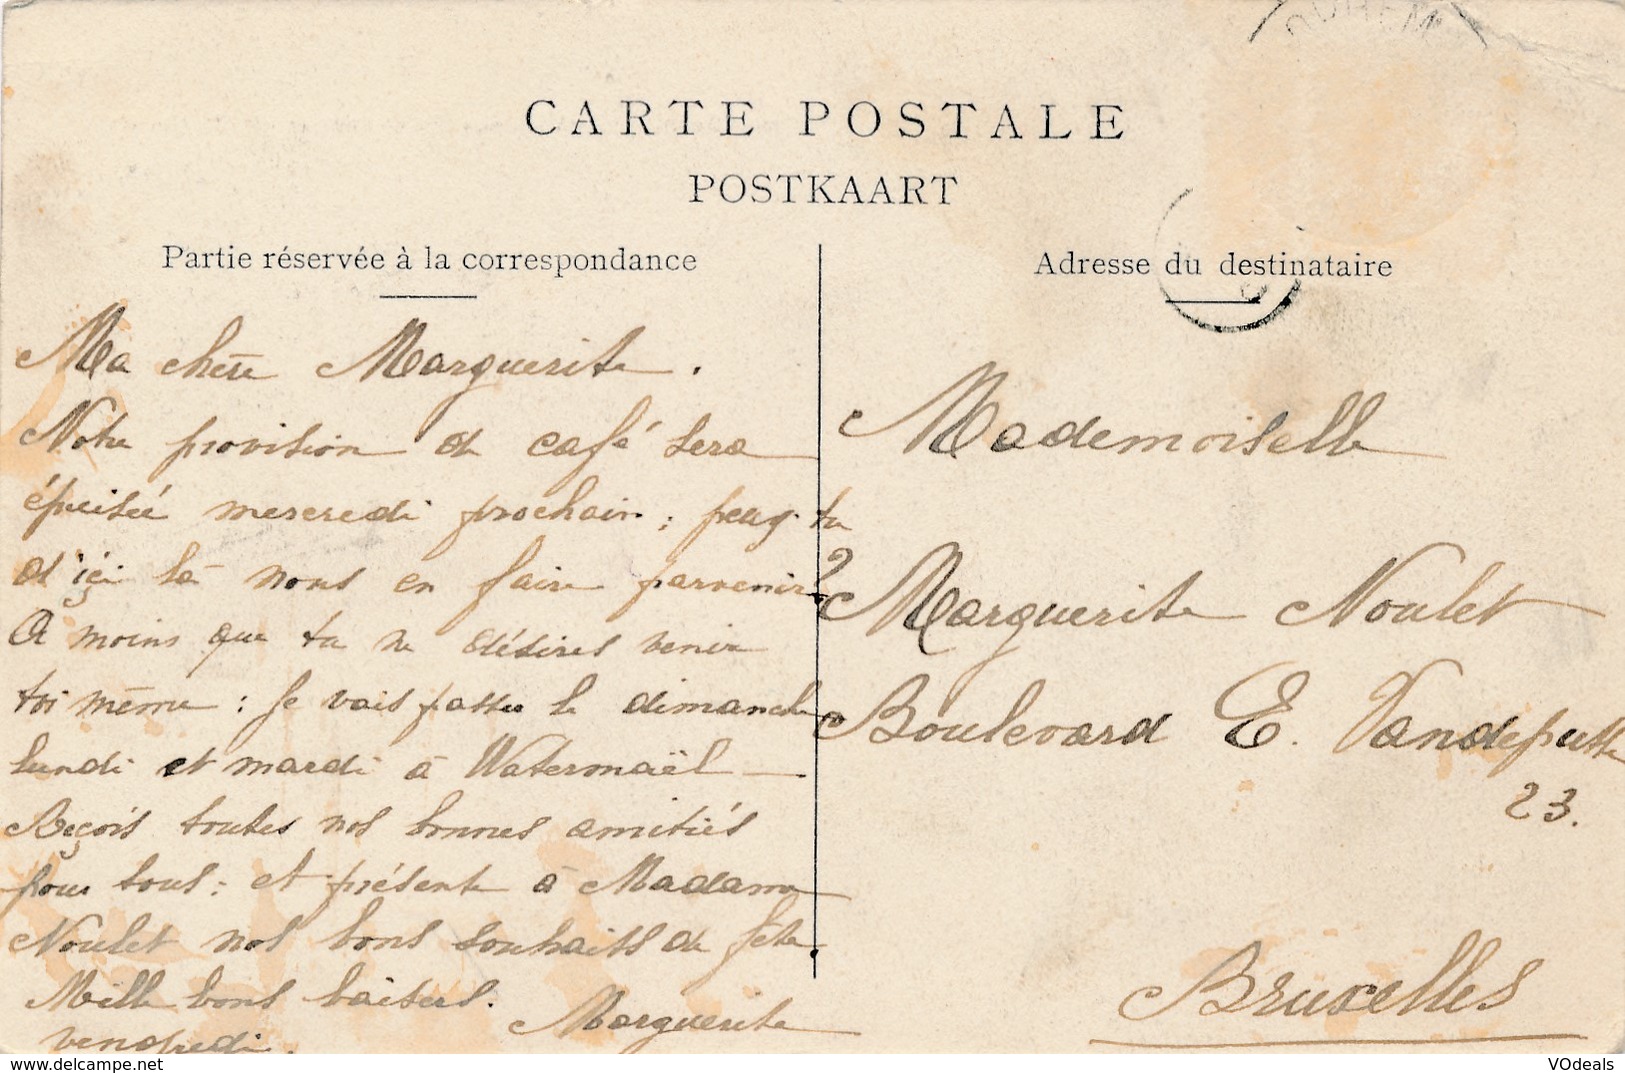 CARTE POSTALE
POSTKAART
Partie réservée à la correspondance
Ma chère Marguerite.
Notre provision de café sera
épuisée mercredi prochain; peux-tu
d'içi là nous en faire parvenir?
A moins que tu ne désires venir
toi même: je vais passer le dimanche
lundi et mardi à Watermaël
Reçois toutes nos bonnes amitiés
pour tous: et présente à Madame
Noulet nos bons souhaits de fête.
Mille bons baisers.
Marguerite
vendredi.
Adresse du destinataire
Mademoiselle
Marguerite Noulet
Boulevard E. Vandeputte
23.
Bruxelles
VOdeals